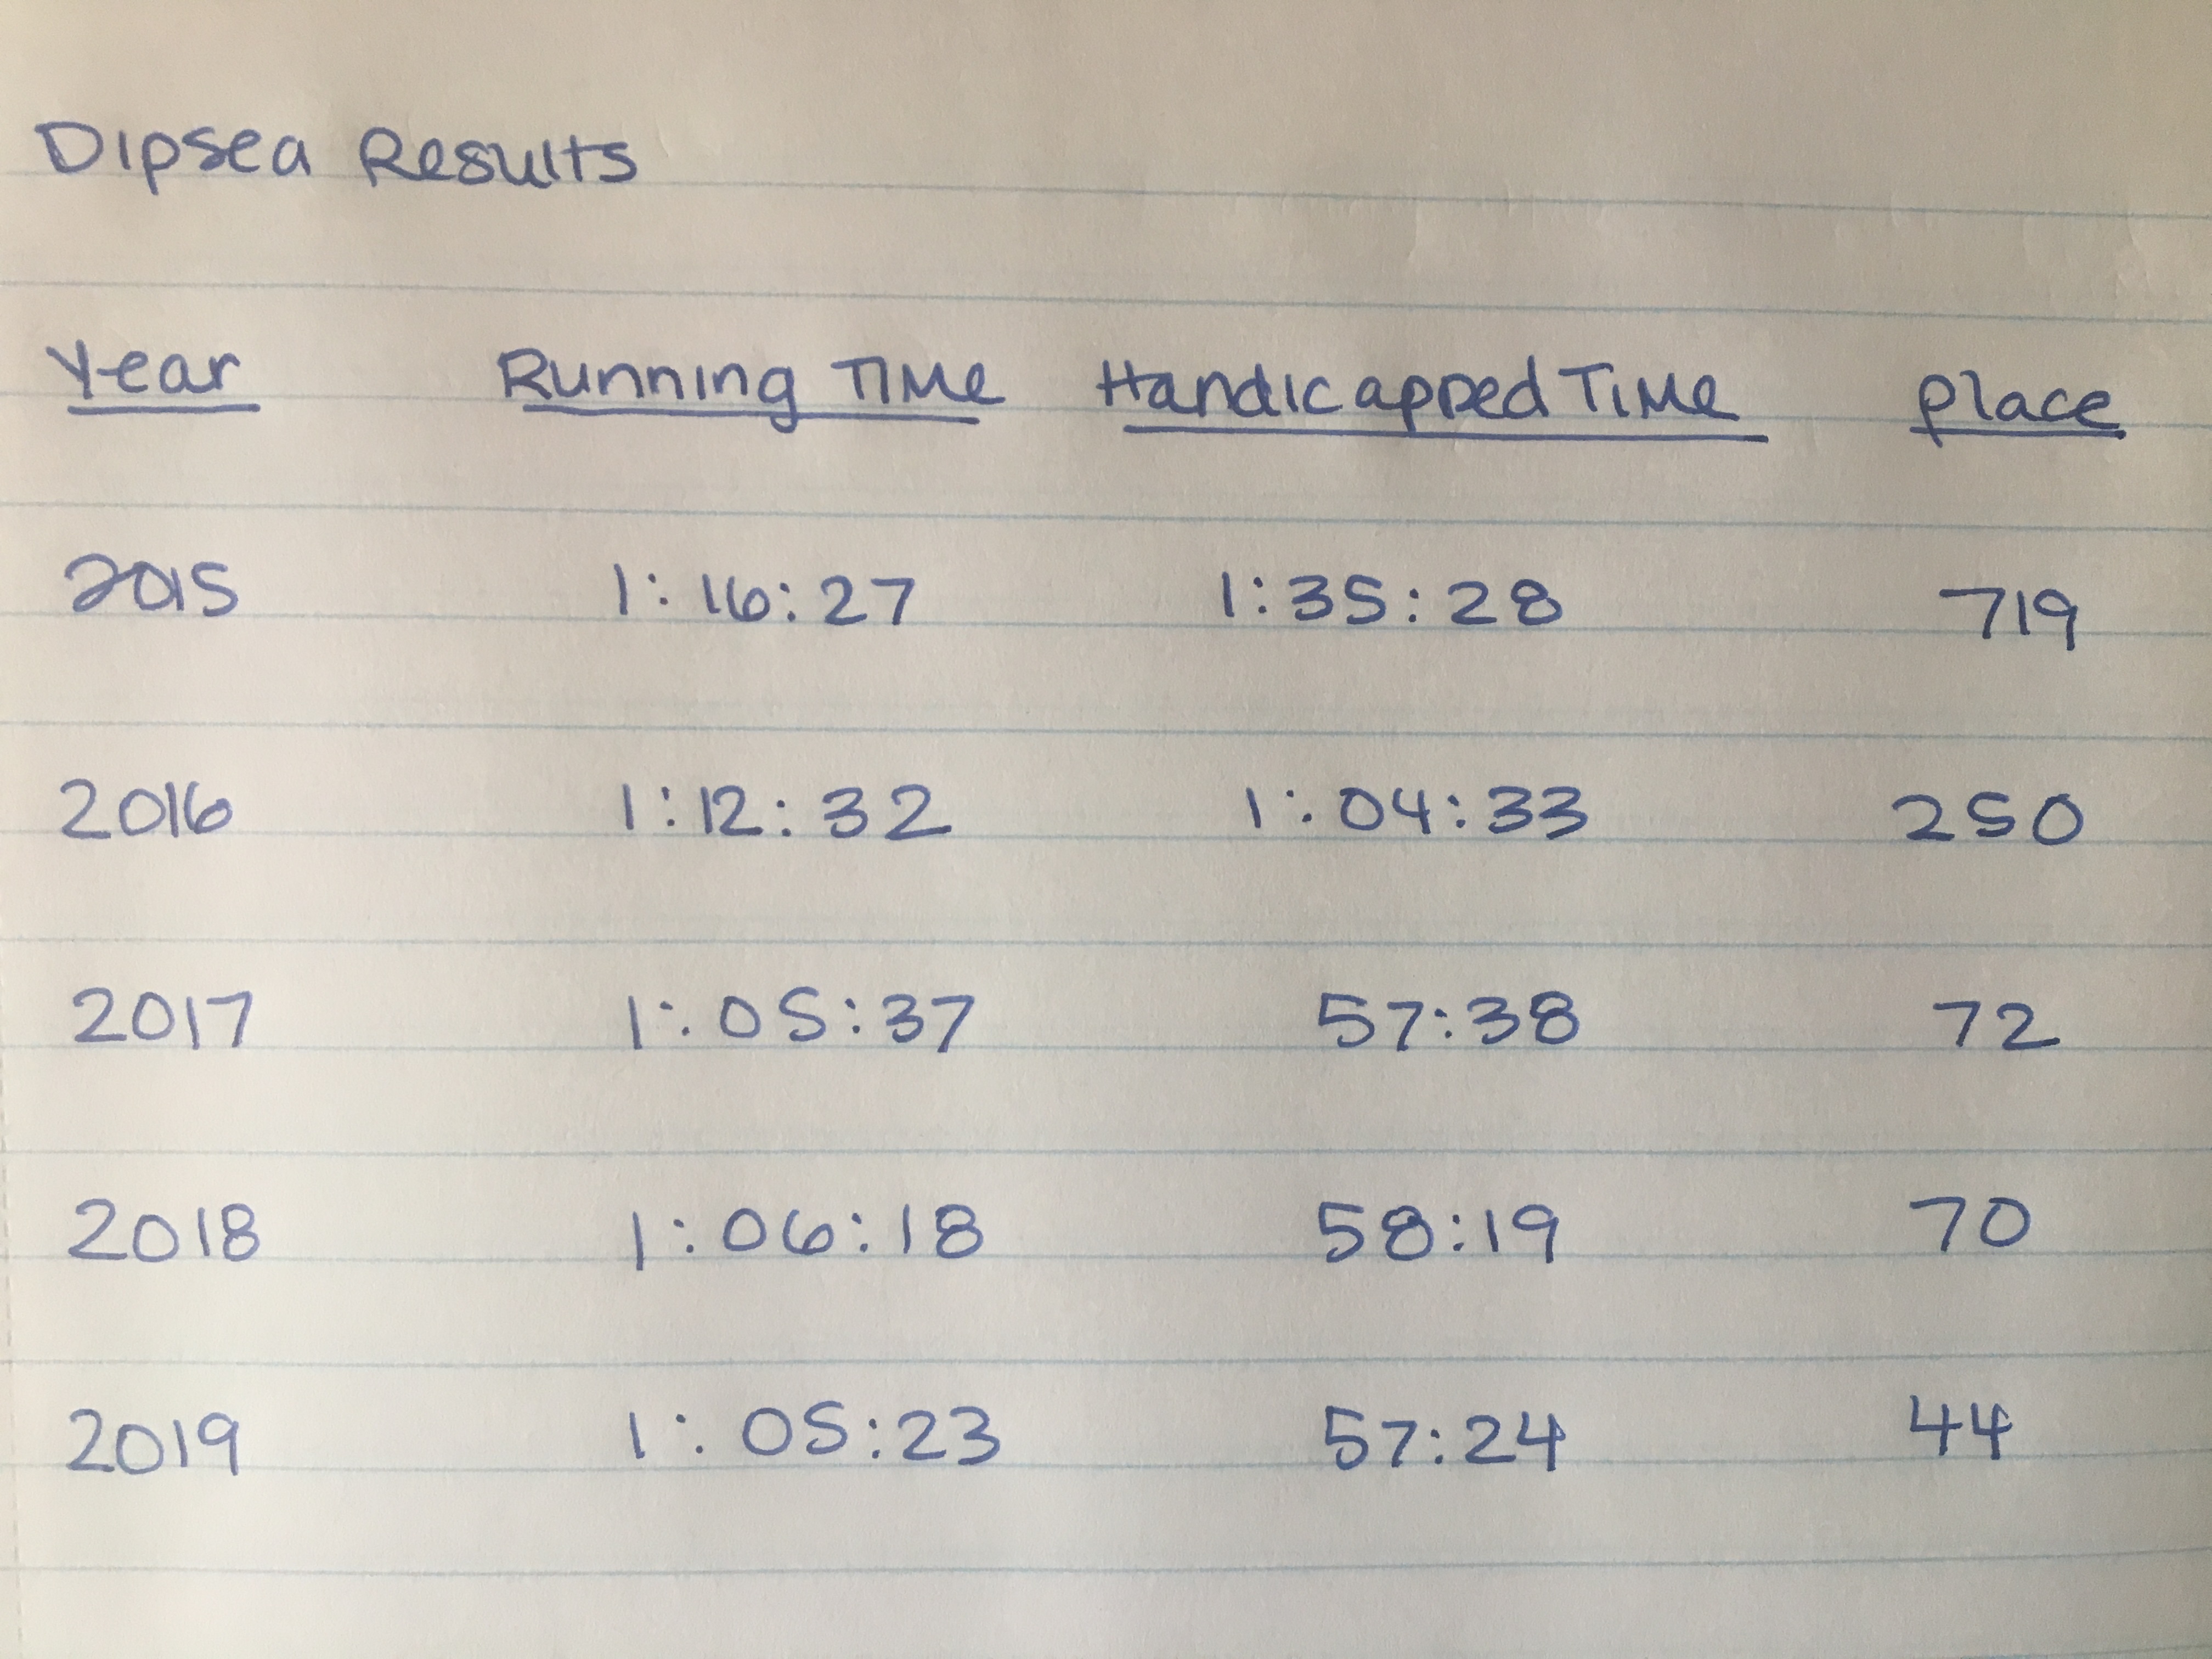 Dipsea Results
Year Running Time Handicapped Time place
2015 1:16:27 1:35:28 719
2016 1:12:32 1:04:33 250
2017 1:05:37 57:38 72
2018 1:06:18 58:19 70
2019 1:05:23 57:24 44